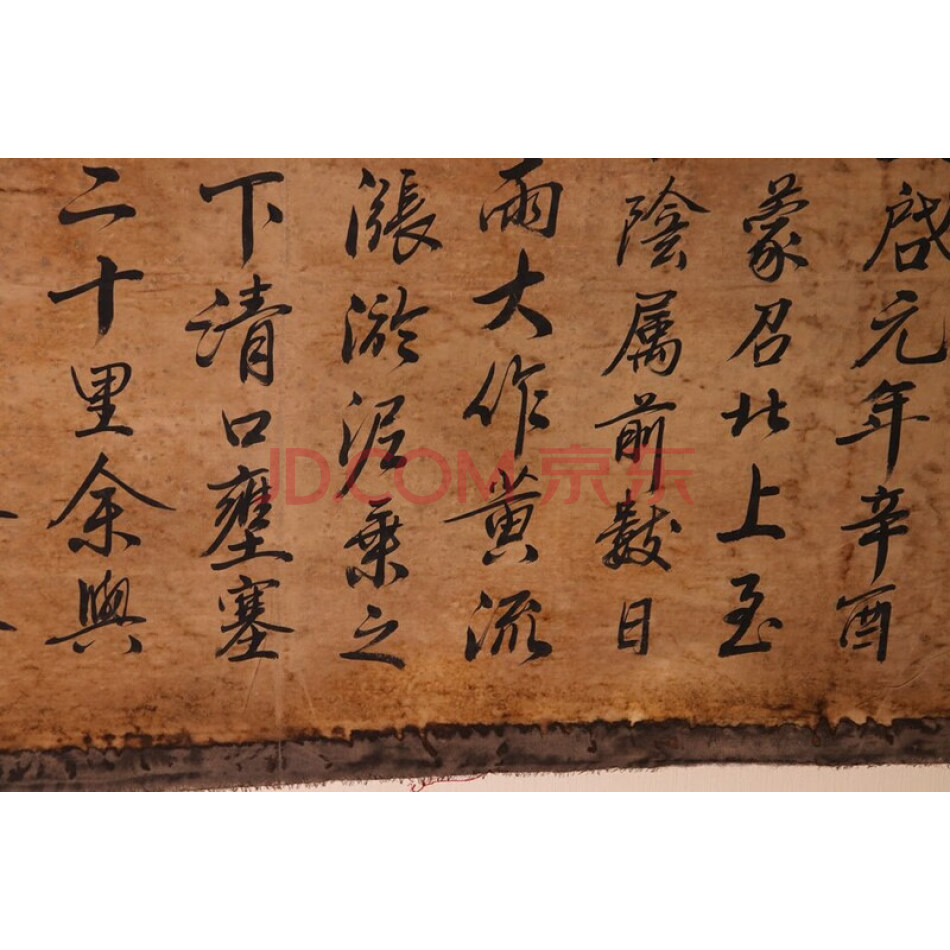 啓元年辛酉
蒙召北上至
陰属前數日
雨大作黄流
漲淤泥乗之
下清口壅塞
二十里余與
JD.COM 京东